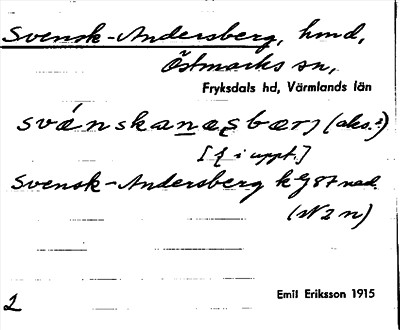 Svensk-Andersberg, hmd,
Östmarks sn,
Fryksdals hd, Värmlands län
(aks.²)
[ξ i uppt.]
Svensk-Andersberg kg 87 ned.
(N2n)
Emil Eriksson 1915
2